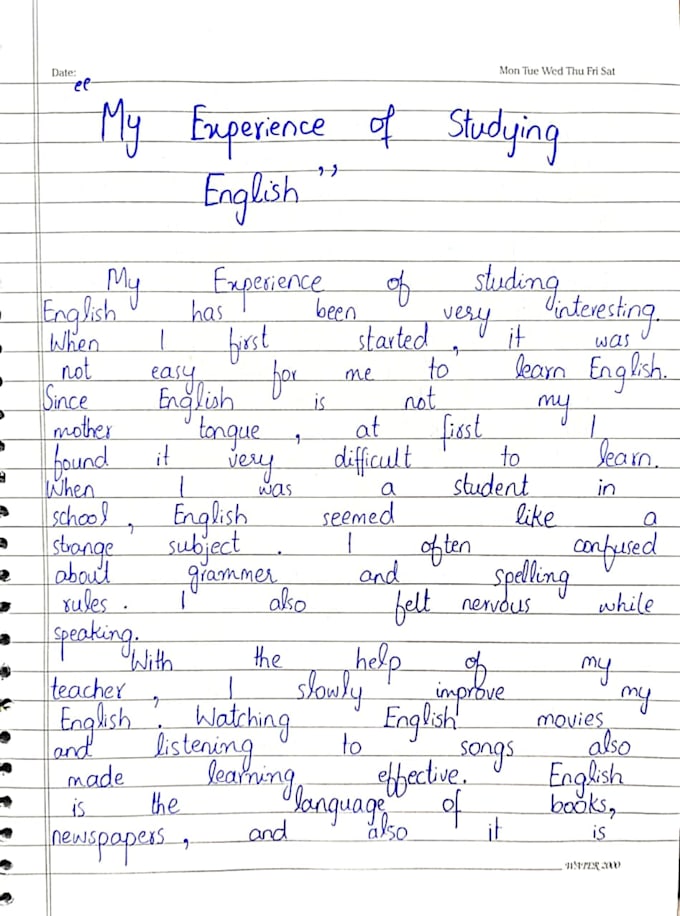 Date:
Mon Tue Wed Thu Fri Sat
"My Experience of Studying
English"
My Experience of studing
English has been very interesting.
When I first started, it was
not easy for me to learn English.
Since English is not my
mother tongue, at first I
found it very difficult to learn.
When I was a student in
school, English seemed like a
strange subject. I often confused
about grammer and spelling
rules. I also felt nervous while
speaking.
With the help of my
teacher, I slowly improve my
English. Watching English movies
and listening to songs also
made learning effective. English
is the language of books,
newspapers, and also it is